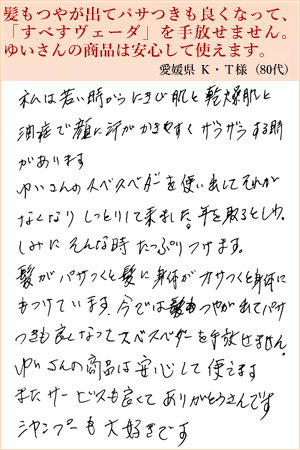 髪もつやが出てパサつきも良くなって、
「すべすヴェーダ」を手放せません。
ゆいさんの商品は安心して使えます。
愛媛県 K・T様（80代）
私は若い時からにきび肌と乾燥肌と
油症で顔に汗がかきやすくザラザラする時
があります
ゆいさんのスベスベダーを使い出してそれが
なくなりしっとりして来ました。年を取るとしわ、
しみにそんな時たっぷりつけます。
髪がパサつくと髪に身体がカサつくと身体に
もつけています。今では髪もつやが出てパサ
つきも良くなってスベスベダーを手放せません。
ゆいさんの商品は安心して使えます
またサービスも良くてありがとうさんです
シャンプーも大好きです